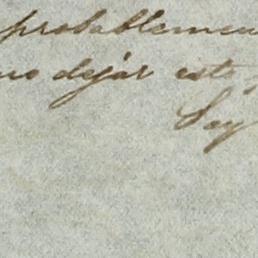 probablemen
no dejár este
Soy